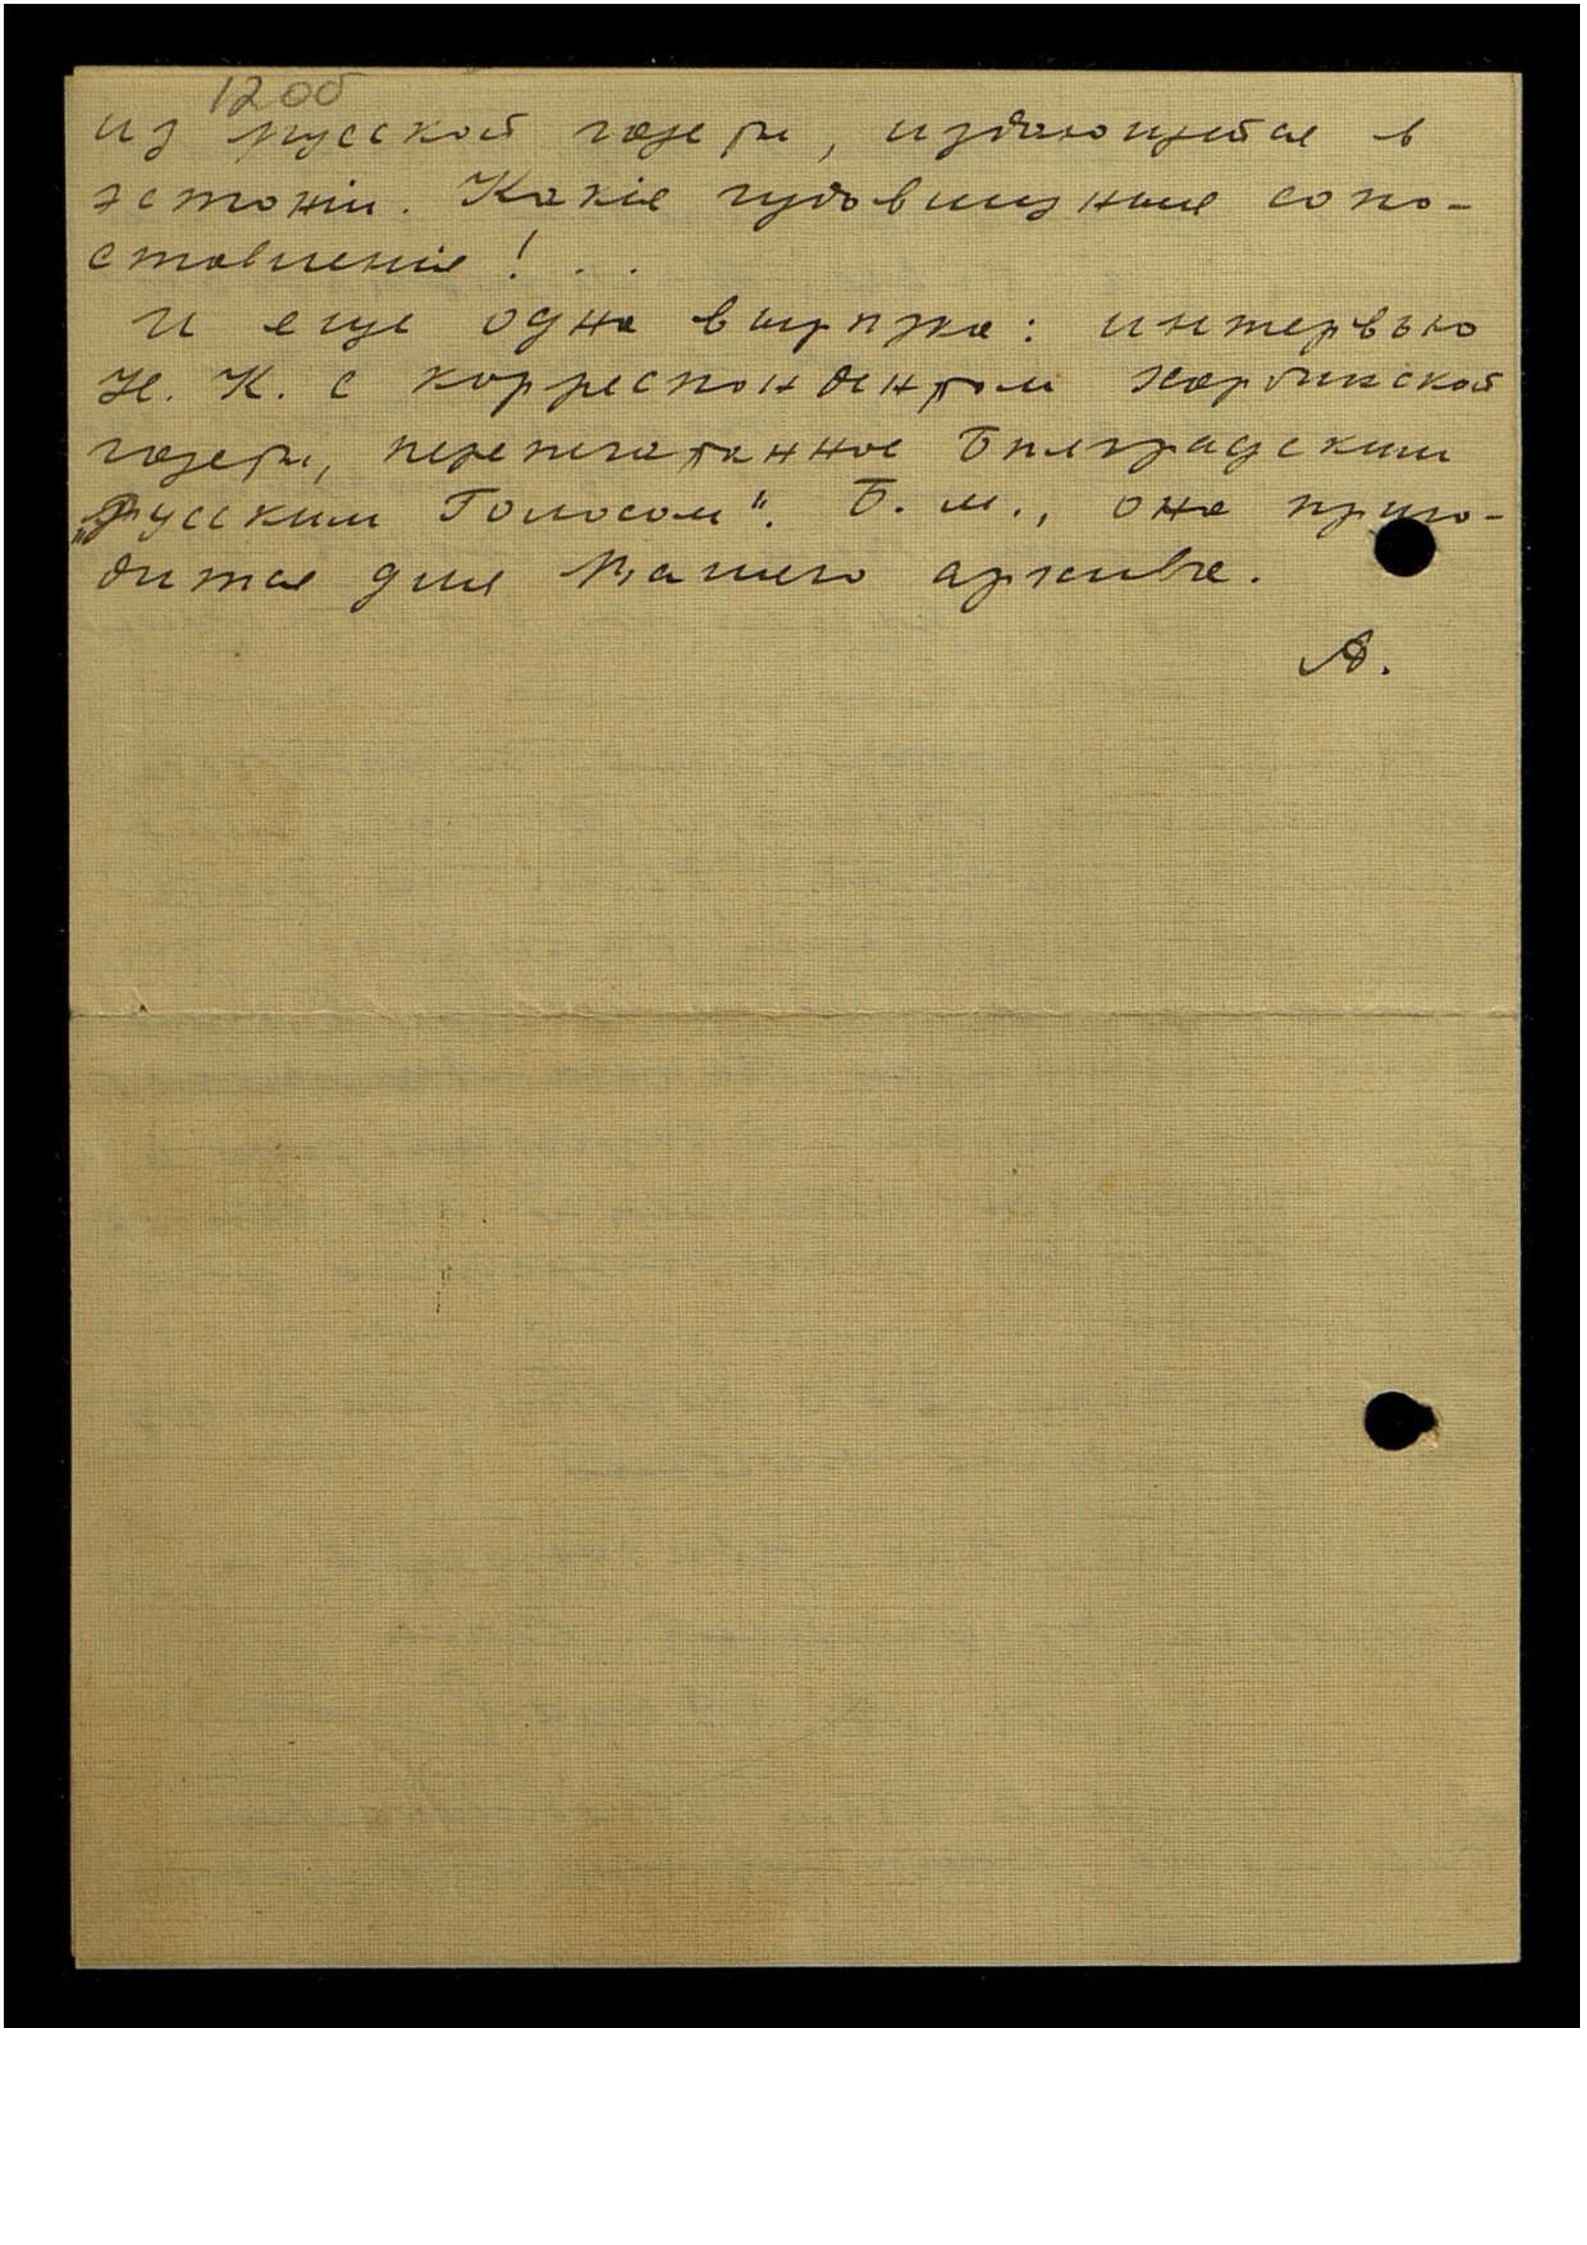 12об
из русской газеты, издающейся в
Эстонiи. Какiе чудовищные сопо-
ставленiя!..
И еще одна вырѣзка: интервью
Н. К. с корреспондентом харбинской
газеты, перепечатанное Бѣлградским
„Русским Голосом". Б. м., она приго-
дится для Вашего архива.
А.